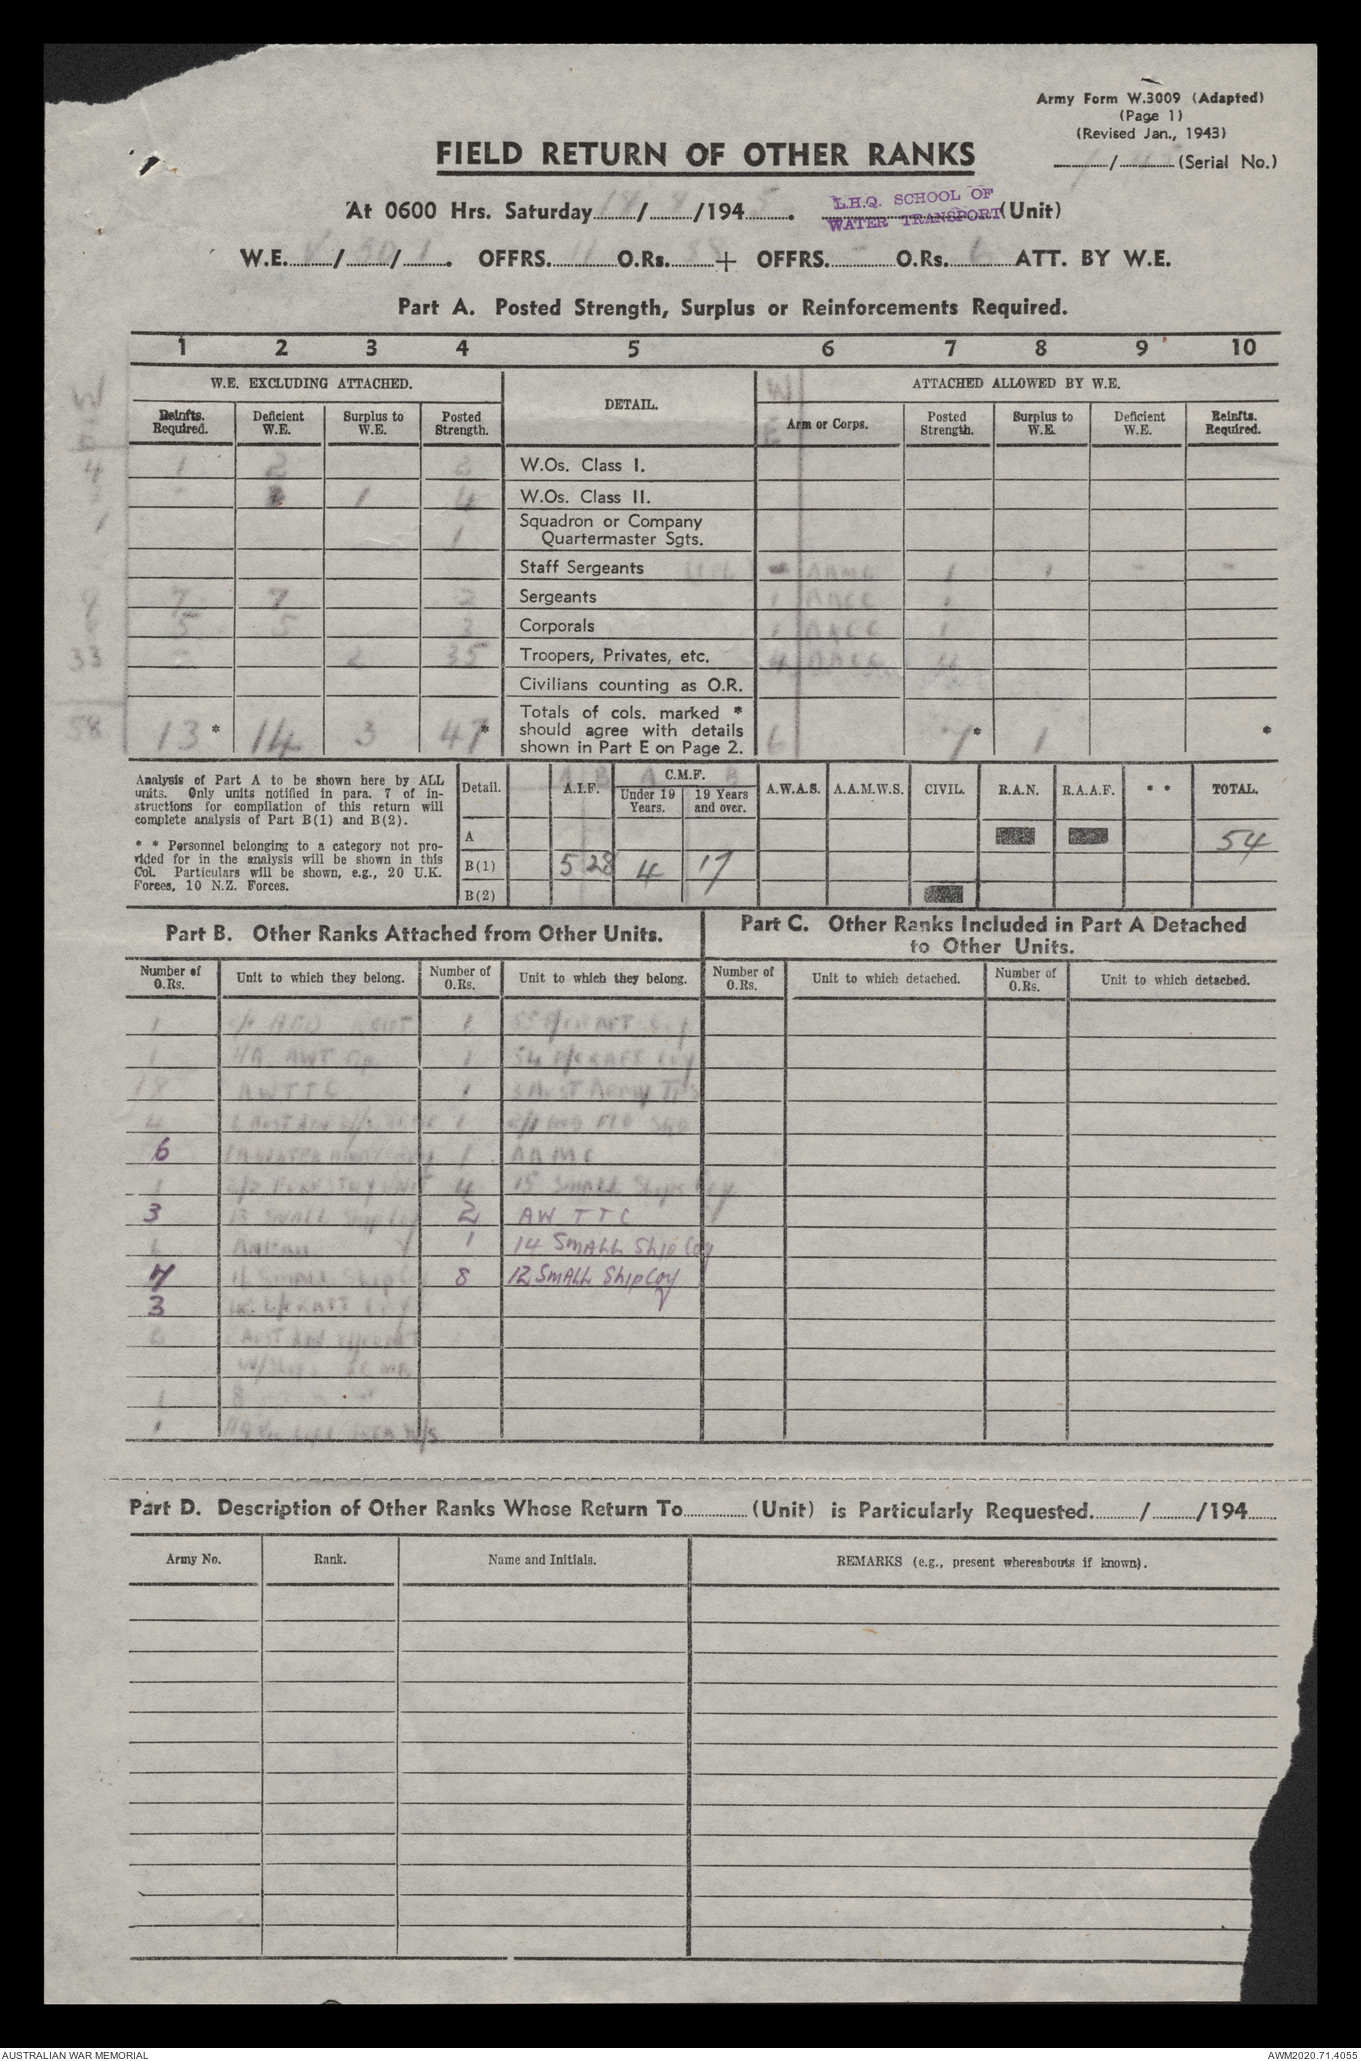 Army Form W.3009 (Adapted)
(Page 1)
(Revised Jan., 1943)
FIELD RETURN OF OTHER RANKS
....../......(Serial No.)
At 0600 Hrs. Saturday....../....../194 5. L.H.Q. SCHOOL OF WATER TRANSPORT (Unit)
W.E. V/....../1. OFFRS. 11 O.Rs. ...... + OFFRS. - O.Rs. 6 ATT. BY W.E.
Part A. Posted Strength, Surplus or Reinforcements Required.
1 2 3 4 5 6 7 8 9 10
W.E. EXCLUDING ATTACHED. DETAIL. ATTACHED ALLOWED BY W.E.
W E Reinfts. Required. Deficient W.E. Surplus to W.E. Posted Strength. W E Arm or Corps. Posted Strength. Surplus to W.E. Deficient W.E. Reinfts. Required.
4 1 2 2 W.Os. Class I.
- 1 4 W.Os. Class II.
1 1 Squadron or Company Quartermaster Sgts.
Staff Sergeants AAMC 1 1 - -
9 7 7 2 Sergeants 1 AACC 1
5 5 3 Corporals 1 AACC 1
33 - 2 35 Troopers, Privates, etc. 4 AACC 4
Civilians counting as O.R.
13 * 14 3 47 * Totals of cols. marked * should agree with details shown in Part E on Page 2. 6 7 * 1 *
Analysis of Part A to be shown here by ALL units. Only units notified in para. 7 of instructions for compilation of this return will complete analysis of Part B(1) and B(2).
* * Personnel belonging to a category not provided for in the analysis will be shown in this Col. Particulars will be shown, e.g., 20 U.K. Forces, 10 N.Z. Forces.
Detail. A B A.I.F. A C.M.F. B Under 19 Years. 19 Years and over. A.W.A.S. A.A.M.W.S. CIVIL. R.A.N. R.A.A.F. * * TOTAL.
A 54
B(1) 5 28 4 17
B(2)
Part B. Other Ranks Attached from Other Units.
Part C. Other Ranks Included in Part A Detached to Other Units.
Number of O.Rs. Unit to which they belong. Number of O.Rs. Unit to which they belong. Number of O.Rs. Unit to which detached. Number of O.Rs. Unit to which detached.
1 1 55 P/CRAFT Coy
1 AWT Gp 1 54 P/CRAFT Coy
18 AWTTC 1 3 Aust Army Tps
4 1
6 1 AAMC
1 2/2 FORESTRY UNIT 4 15 Small Ships Coy
3 13 SMALL Ship Coy 2 AW TTC
1 14 SMALL Ship Coy
7 16 Small Ship Coy 8 12 SMALL Ship Coy
3
1
1
Part D. Description of Other Ranks Whose Return To............(Unit) is Particularly Requested......../......../194......
Army No. Rank. Name and Initials. REMARKS (e.g., present whereabouts if known).
AUSTRALIAN WAR MEMORIAL AWM2020.71.4055